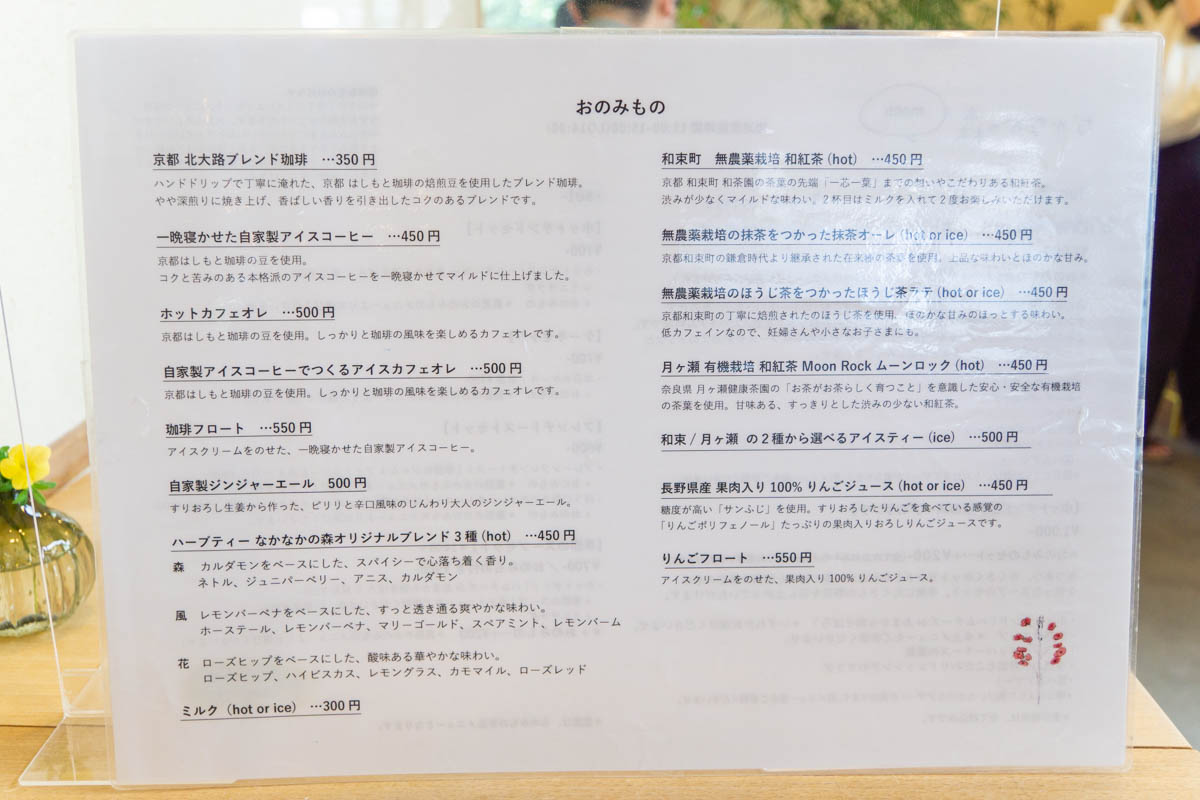 おのみもの
京都 北大路ブレンド珈琲 …350 円
ハンドドリップで丁寧に淹れた、京都 はしもと珈琲の焙煎豆を使用したブレンド珈琲。
やや深煎りに焼き上げ、香ばしい香りを引き出したコクのあるブレンドです。
一晩寝かせた自家製アイスコーヒー …450 円
京都はしもと珈琲の豆を使用。
コクと苦みのある本格派のアイスコーヒーを一晩寝かせてマイルドに仕上げました。
ホットカフェオレ …500 円
京都はしもと珈琲の豆を使用。しっかりと珈琲の風味を楽しめるカフェオレです。
自家製アイスコーヒーでつくるアイスカフェオレ …500 円
京都はしもと珈琲の豆を使用。しっかりと珈琲の風味を楽しめるカフェオレです。
珈琲フロート …550 円
アイスクリームをのせた、一晩寝かせた自家製アイスコーヒー。
自家製ジンジャーエール 500 円
すりおろし生姜から作った、ピリリと辛口風味のじんわり大人のジンジャーエール。
ハーブティー なかなかの森オリジナルブレンド 3 種 (hot) …450 円
森 カルダモンをベースにした、スパイシーで心落ち着く香り。
ネトル、ジュニパーベリー、アニス、カルダモン
風 レモンバーベナをベースにした、すっと透き通る爽やかな味わい。
ホーステール、レモンバーベナ、マリーゴールド、スペアミント、レモンバーム
花 ローズヒップをベースにした、酸味ある華やかな味わい。
ローズヒップ、ハイビスカス、レモングラス、カモマイル、ローズレッド
ミルク (hot or ice) …300 円
和束町 無農薬栽培 和紅茶 (hot) …450 円
京都 和束町 和茶園の茶葉の先端「一芯一葉」までの匂いやこだわりある和紅茶。
渋みが少なくマイルドな味わい。2 杯目はミルクを入れて 2 度お楽しみいただけます。
無農薬栽培の抹茶をつかった抹茶オーレ (hot or ice) …450 円
京都和束町の鎌倉時代より継承された在来種の茶葉を使用。上品な味わいとほのかな甘み。
無農薬栽培のほうじ茶をつかったほうじ茶ラテ (hot or ice) …450 円
京都和束町の丁寧に焙煎されたのほうじ茶を使用。ほのかな甘みのほっとする味わい。
低カフェインなので、妊婦さんや小さなお子さまにも。
月ヶ瀬 有機栽培 和紅茶 Moon Rock ムーンロック (hot) …450 円
奈良県 月ヶ瀬健康茶園の「お茶がお茶らしく育つこと」を意識した安心・安全な有機栽培
の茶葉を使用。甘味ある、すっきりとした渋みの少ない和紅茶。
和束 / 月ヶ瀬 の 2 種から選べるアイスティー (ice) …500 円
長野県産 果肉入り 100% りんごジュース (hot or ice) …450 円
糖度が高い「サンふじ」を使用。すりおろしたりんごを食べている感覚の
「りんごポリフェノール」たっぷりの果肉入りおろしりんごジュースです。
りんごフロート …550 円
アイスクリームをのせた、果肉入り 100% りんごジュース。